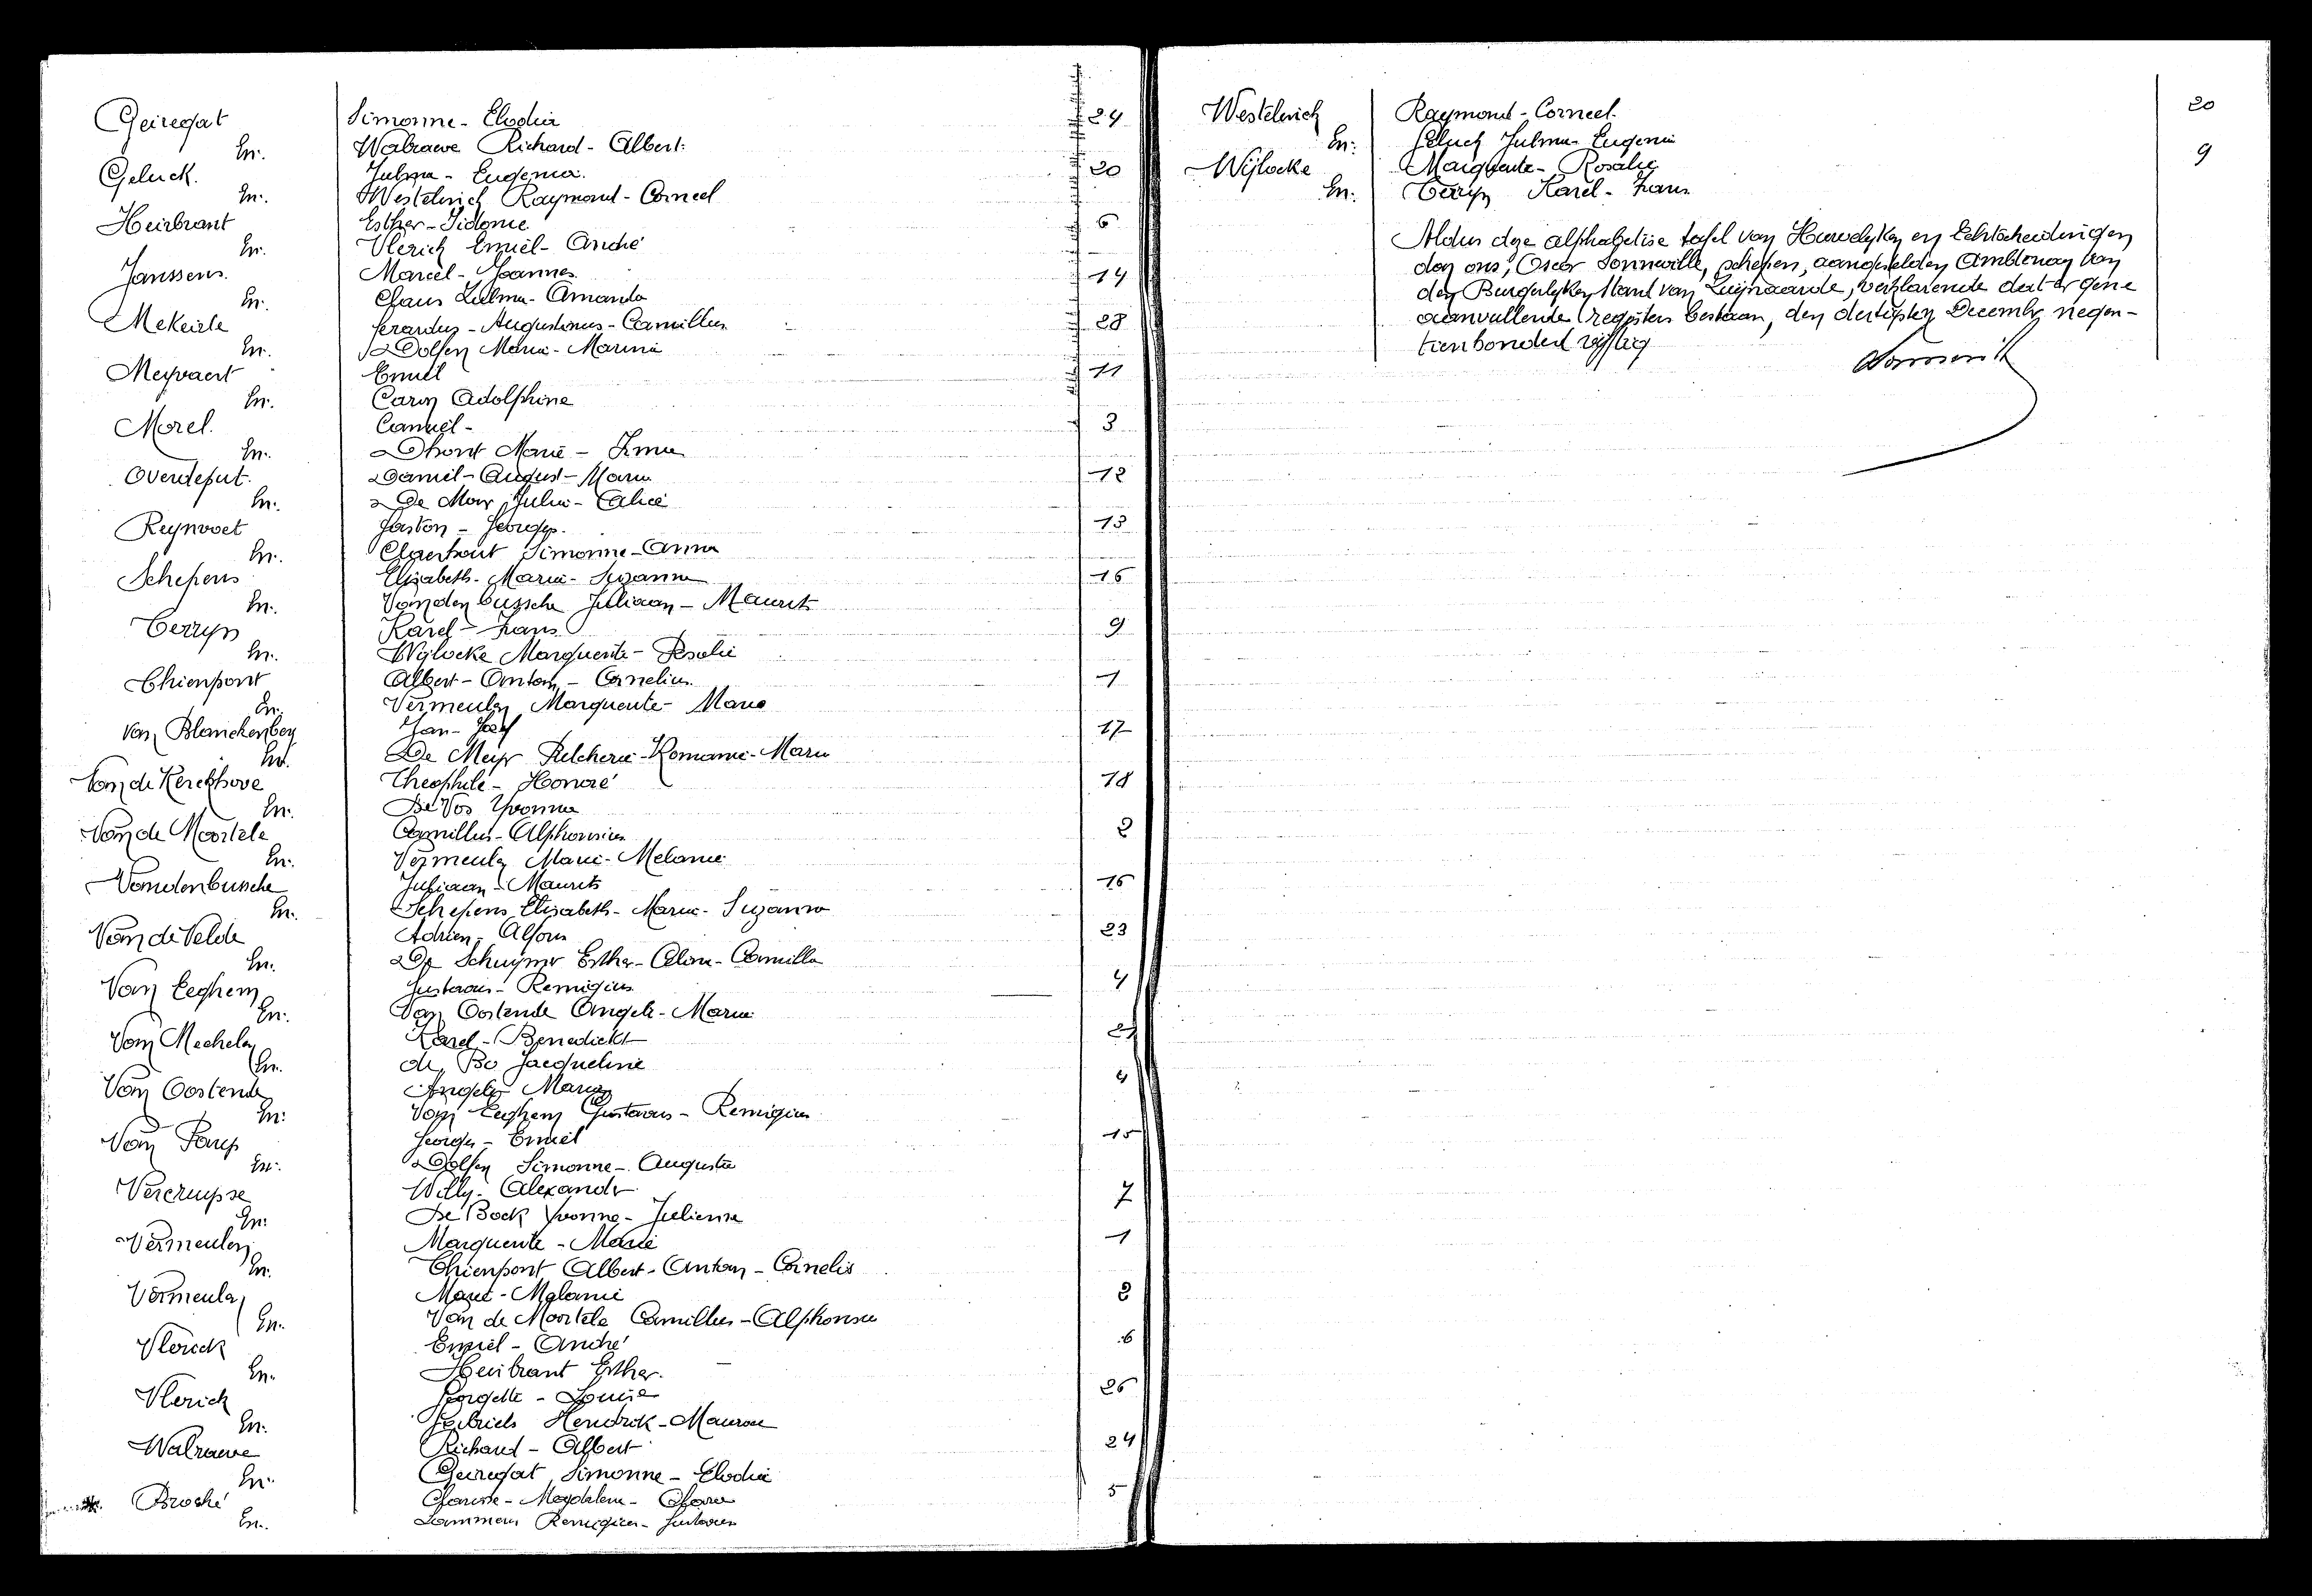 Geiregat Simonne - Elodia 24
En. Walrawe Richard - Albert.
Geluck. Julma - Eugenia. 20
En. Westelinck Raymond - Corneel
Heirbrant Esther - Sidonie 6
En. Vlerick Emiel - André
Janssens. Marcel - Joannes 14
En. Claus Zulma - Amanda
Mekeirle Gerardus - Augustinus - Camillus 28
En. Dolfen Maria - Marina
Meyvaert Emiel 11
En. Caron Adolphine
Morel. Camiel - 3
En. Dhont Marie - Irma
Overdeput. Daniel - August - Maria 12
En. De Mar Julia - Alice
Reynvoet Gaston - Georges. 13
En. Claerhout Simonne - Anna
Schepens Elisabeth - Maria - Suzanna 16
En. Vandenbussche Juliaan - Maurits
Terryn Karel - Frans 9
En. Wijlocke Marguerite - Rosalie
Thienpont Albert - Antoon - Cornelius. 1
En. Vermeulen Marguerite - Marie
Van Blanckenberg Jan - Jozef 17
En. De Meyr Pulcherie - Romanie - Maria
Van de Kerckhove Theophile - Honoré 18
En. De Vos Yvonna
Van de Moortele Camillus - Alphonsius 2
En. Vermeulen Marie - Melanie
Vandenbussche Juliaan - Maurits 16
En. Schepens Elisabeth - Maria - Suzanna
Van de Velde Adrien - Alfons 23
En. De Schuymer Esther - Alina - Camilla
Van Eeghem Gustavus - Remigius 4
En. Van Oostende Angela - Maria
Van Mechelen Karel - Benedickt 21
En. de Bo Jacqueline
Van Oostende Angela Maria 4
En. Van Eeghem Gustavus - Remigius
Van Parys Georges - Emiel 15
En. Dolfen Simonne - Augusta
Vercruysse Willy - Alexander 7
En. De Bock Yvonne - Julienne
Vermeulen Marguerite - Marie 1
En. Thienpont Albert - Antoon - Cornelis
Vermeulen Marie - Melanie 2
En. Van de Moortele Camillus - Alphonsius
Vlerick Emiel - André 6
En. Heirbrant Esther.
Vlerick Georgette - Louise 26
En. Gabriels Hendrik - Maurice
Walrawe Richard - Albert 24
En. Geiregat Simonne - Elodia
* Broché Clarisse - Magdalena - Clara 5
En. Lammens Remigius - Gustavus
Westelinck Raymond - Corneel. 20
En. Geluck Julma - Eugenia
Wijlocke Marguerite - Rosalie 9
En. Terryn Karel - Frans
Aldus deze alphabetise tafel van Huwelyken en Echtscheidingen
door ons, Oscar Sonneville, schepen, aangestelden Ambtenaar van
den Burgerlyken Stand van Zwijnaarde, verklarende dat er gene
aanvullende registers bestaan, den dertigsten December negen-
tienhonderd vijftig